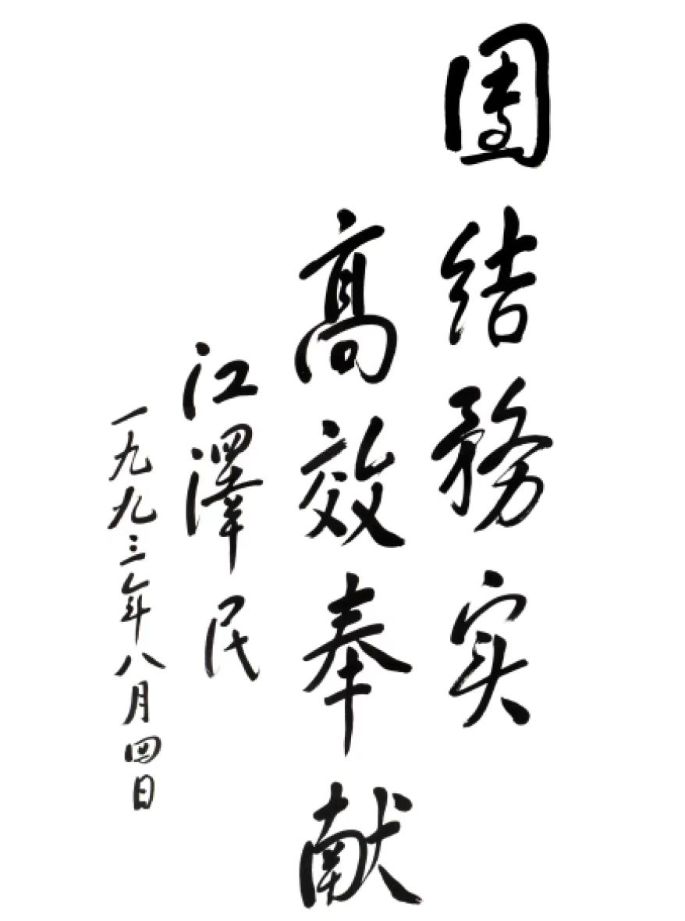 團结務实
高效奉献
江澤民
一九九三年八月四日